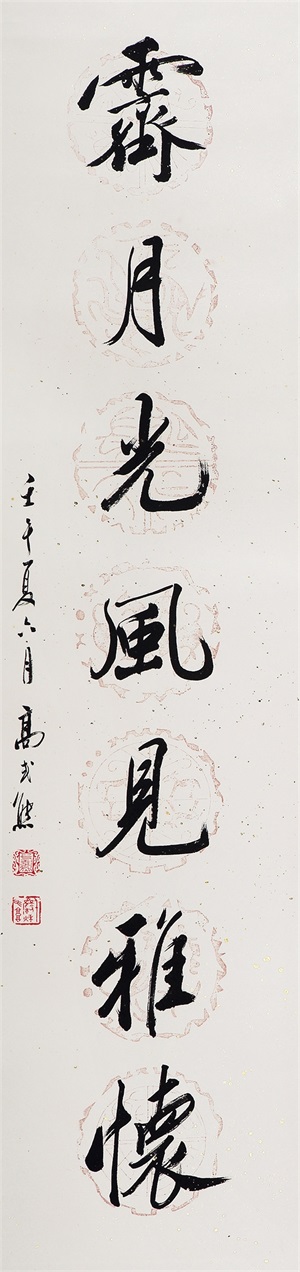 霽月光風見雅懷
壬午夏六月 高式熊